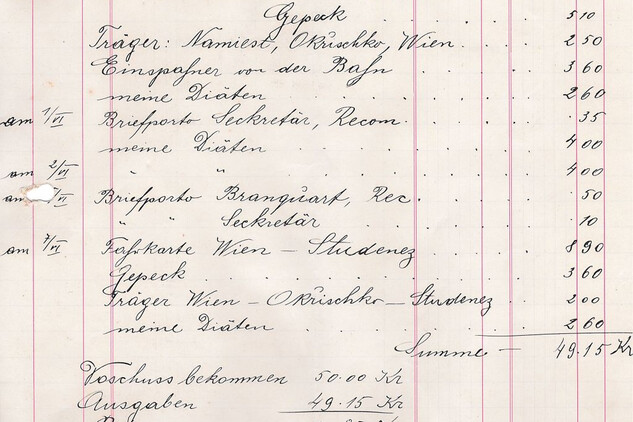 Gepeck . . . . . . 5 10
Träger: Namiest, Okřischko, Wien . . . . 2 50
Einspänner von der Bahn . . . . 3 60
meine Diäten . . . . . . 2 60
am 1/VI Briefporto Seckretär, Recom. . . . · 35
meine Diäten . . . . . . 4 00
am 2/VI " " . . . . . 4 00
/VI Briefporto Branquart, Rec. . . . 50
" " Seckretär . . . . · 10
am 7/VI Fahrkarte Wien – Studenez . . . . 8 90
Gepeck . . . . . . . 3 60
Träger Wien – Okřischko – Studenez . . 2 00
meine Diäten . . . . . . 2 60
Summe – 49·15 Kr
Voschuss bekommen 50·00 Kr
Ausgaben 49·15 Kr